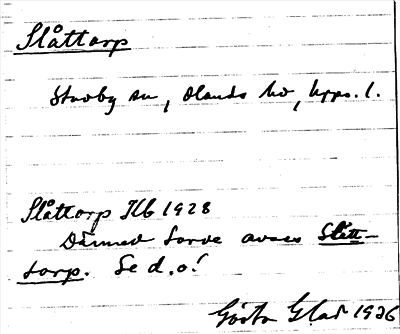 Slåttorp
Stavby sn, Olands hd, Upps. l.
Slåttorp JEb 1928
Därmed torde avses Slätt-
torp. Se d.o!
Gösta Glad 1936